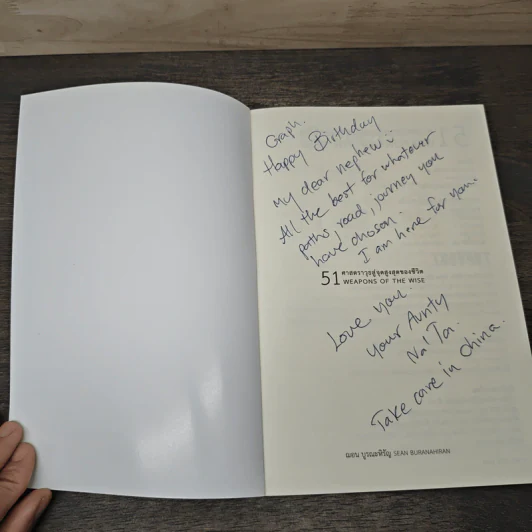 Graph.
Happy Birthday
My dear nephew
All the best for whatever
paths, road, journey you
have chosen.
I am here for you.
51 ศาสตราวุธสู่จุดสูงสุดของชีวิต
WEAPONS OF THE WISE
Love you.
your Aunty
Na' Ta.
Take care in China.
ฌอน บูรณะหิรัญ SEAN BURANAHIRAN